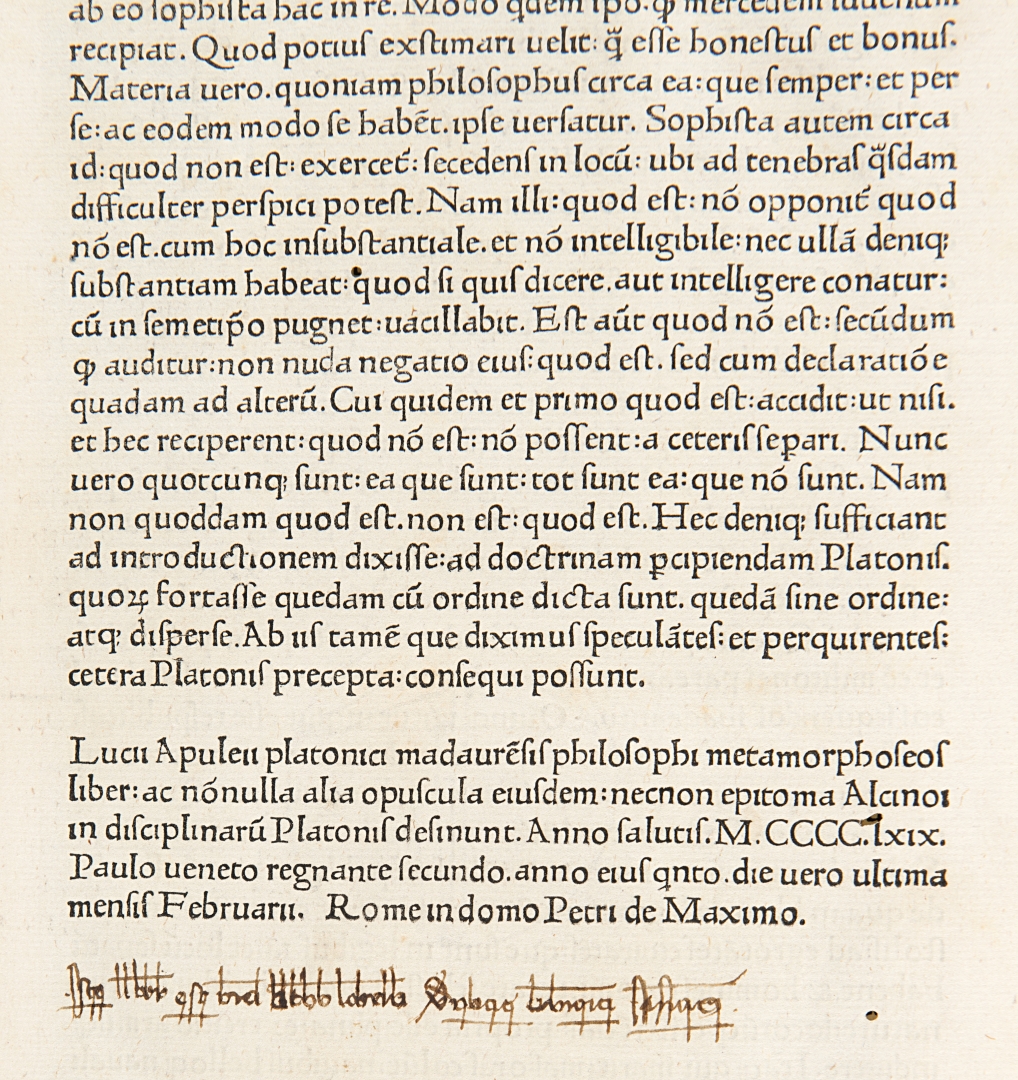 ab eo sophista hac in re. Modo quem ipo. ꝙ mercedem
recipiat. Quod potius exstimari uelit: q̃ esse honestus et bonus.
Materia uero. quoniam philosophus circa ea: que semper: et per
se: ac eodem modo se habēt. ipse uersatur. Sophista autem circa
id: quod non est: exercet́: secedens in locū: ubi ad tenebras q̃sdam
difficulter perspici potest. Nam illi: quod est: nō opponit́ quod
nō est. cum hoc insubstantiale. et nō intelligibile: nec ullā deniqꝫ
substantiam habeat: quod si quis dicere. aut intelligere conatur:
cū in semetip̄o pugnet: uacillabit. Est aūt quod nō est: secūdum
ꝙ auditur: non nuda negatio eius: quod est. sed cum declaratiōe
quadam ad alterū. Cui quidem et primo quod est: accidit: ut nisi.
et hec reciperent: quod nō est: nō possent: a ceteris seꝑari. Nunc
uero quotcunqꝫ sunt: ea que sunt: tot sunt ea: que nō sunt. Nam
non quoddam quod est. non est: quod est. Hec deniqꝫ sufficiant
ad introductionem dixisse: ad doctrinam ꝑcipiendam Platonis.
quoꝝ fortasse quedam cū ordine dicta sunt. quedā sine ordine:
atqꝫ disperse. Ab iis tamē que diximus speculātes: et perquirentes:
cetera Platonis precepta: consequi possunt.
Lucii Apuleii platonici madaurēsis philosophi metamorphoseos
liber: ac nōnulla alia opuscula eiusdem: necnon epitoma Alcinoi
in disciplinarū Platonis desinunt. Anno salutis. M. CCCC. lxix.
Paulo ueneto regnante secundo. anno eius qnto. die uero ultima
mensis Februarii. Rome in domo Petri de Maximo.